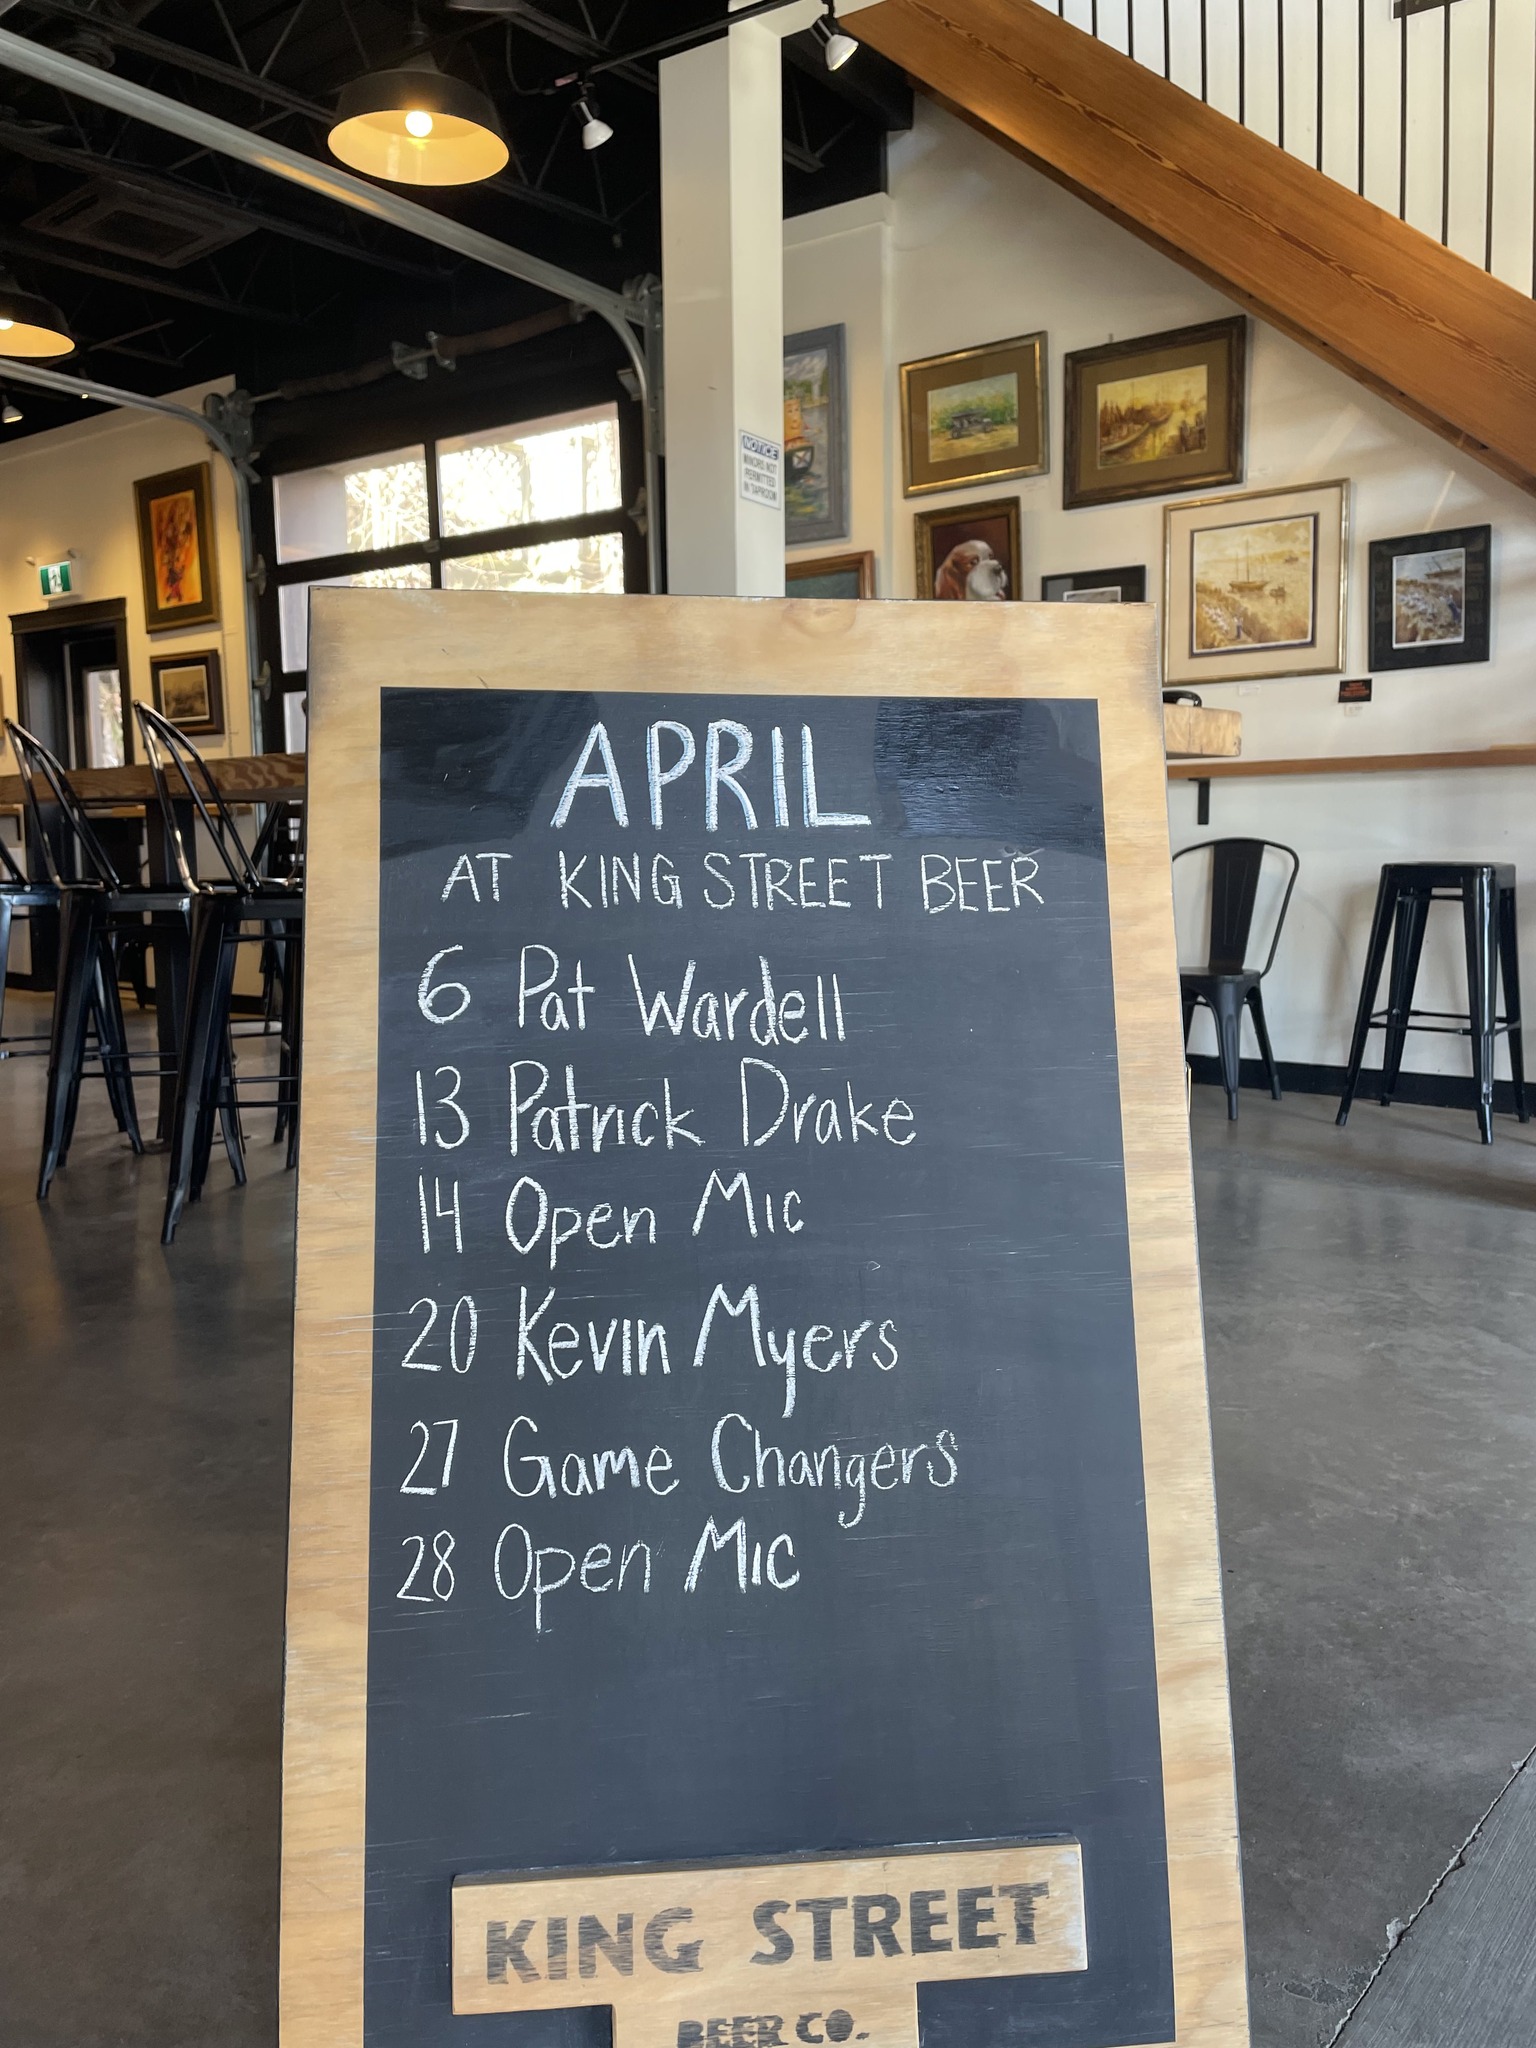 NOTICE
MINORS NOT
PERMITTED
IN TAPROOM
APRIL
AT KING STREET BEER
6 Pat Wardell
13 Patrick Drake
14 Open Mic
20 Kevin Myers
27 Game Changers
28 Open Mic
KING STREET
BEER CO.